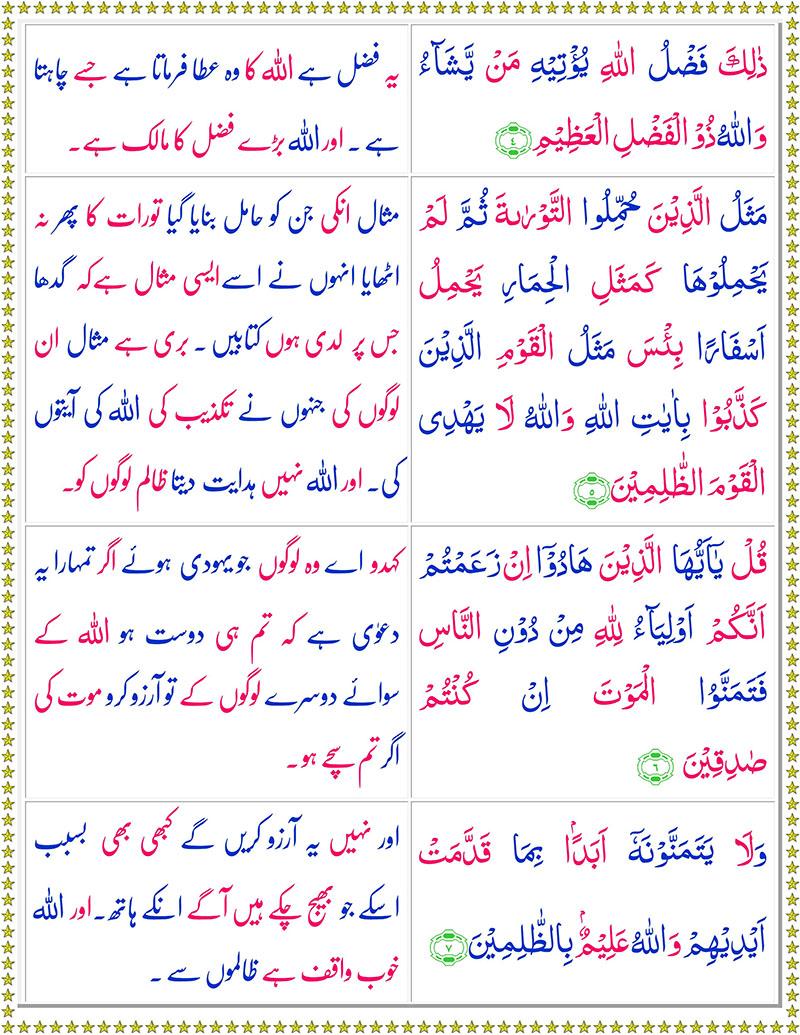 ذٰلِكَ فَضْلُ اللهِ يُؤْتِيْهِ مَنْ يَّشَآءُ
وَاللهُ ذُوْ الْفَضْلِ الْعَظِيْمِ ﴿٤﴾
یہ فضل ہے اللہ کا وہ عطا فرماتا ہے جسے چاہتا
ہے ۔ اور اللہ بڑے فضل کا مالک ہے۔
مَثَلُ الَّذِيْنَ حُمِّلُوا التَّوْرٰىةَ ثُمَّ لَمْ
يَحْمِلُوْهَا كَمَثَلِ الْحِمَارِ يَحْمِلُ
اَسْفَارًا بِئْسَ مَثَلُ الْقَوْمِ الَّذِيْنَ
كَذَّبُوْا بِاٰيٰتِ اللهِ وَاللهُ لَا يَهْدِى
الْقَوْمَ الظّٰلِمِيْنَ ﴿٥﴾
مثال انکی جن کو حامل بنایا گیا تورات کا پھر نہ
اٹھایا انہوں نے اسے ایسی مثال ہے کہ گدھا
جس پر لدی ہوں کتابیں ۔ بری ہے مثال ان
لوگوں کی جنہوں نے تکذیب کی اللہ کی آیتوں
کی۔ اور اللہ نہیں ہدایت دیتا ظالم لوگوں کو۔
قُلْ يٰۤاَيُّهَا الَّذِيْنَ هَادُوْۤا اِنْ زَعَمْتُمْ
اَنَّكُمْ اَوْلِيَآءُ لِلّٰهِ مِنْ دُوْنِ النَّاسِ
فَتَمَنَّوُا الْمَوْتَ اِنْ كُنْتُمْ
صٰدِقِيْنَ ﴿٦﴾
کہدو اے وہ لوگوں جو یہودی ہوئے اگر تمہارا یہ
دعوٰی ہے کہ تم ہی دوست ہو اللہ کے
سوائے دوسرے لوگوں کے تو آرزو کرو موت کی
اگر تم سچے ہو۔
وَلَا يَتَمَنَّوْنَهٗۤ اَبَدًاۢ بِمَا قَدَّمَتْ
اَيْدِيْهِمْ وَاللهُ عَلِيْمٌۢ بِالظّٰلِمِيْنَ ﴿٧﴾
اور نہیں یہ آرزو کریں گے کبھی بھی بسبب
اسکے جو بھیج چکے ہیں آگے انکے ہاتھ۔ اور اللہ
خوب واقف ہے ظالموں سے ۔